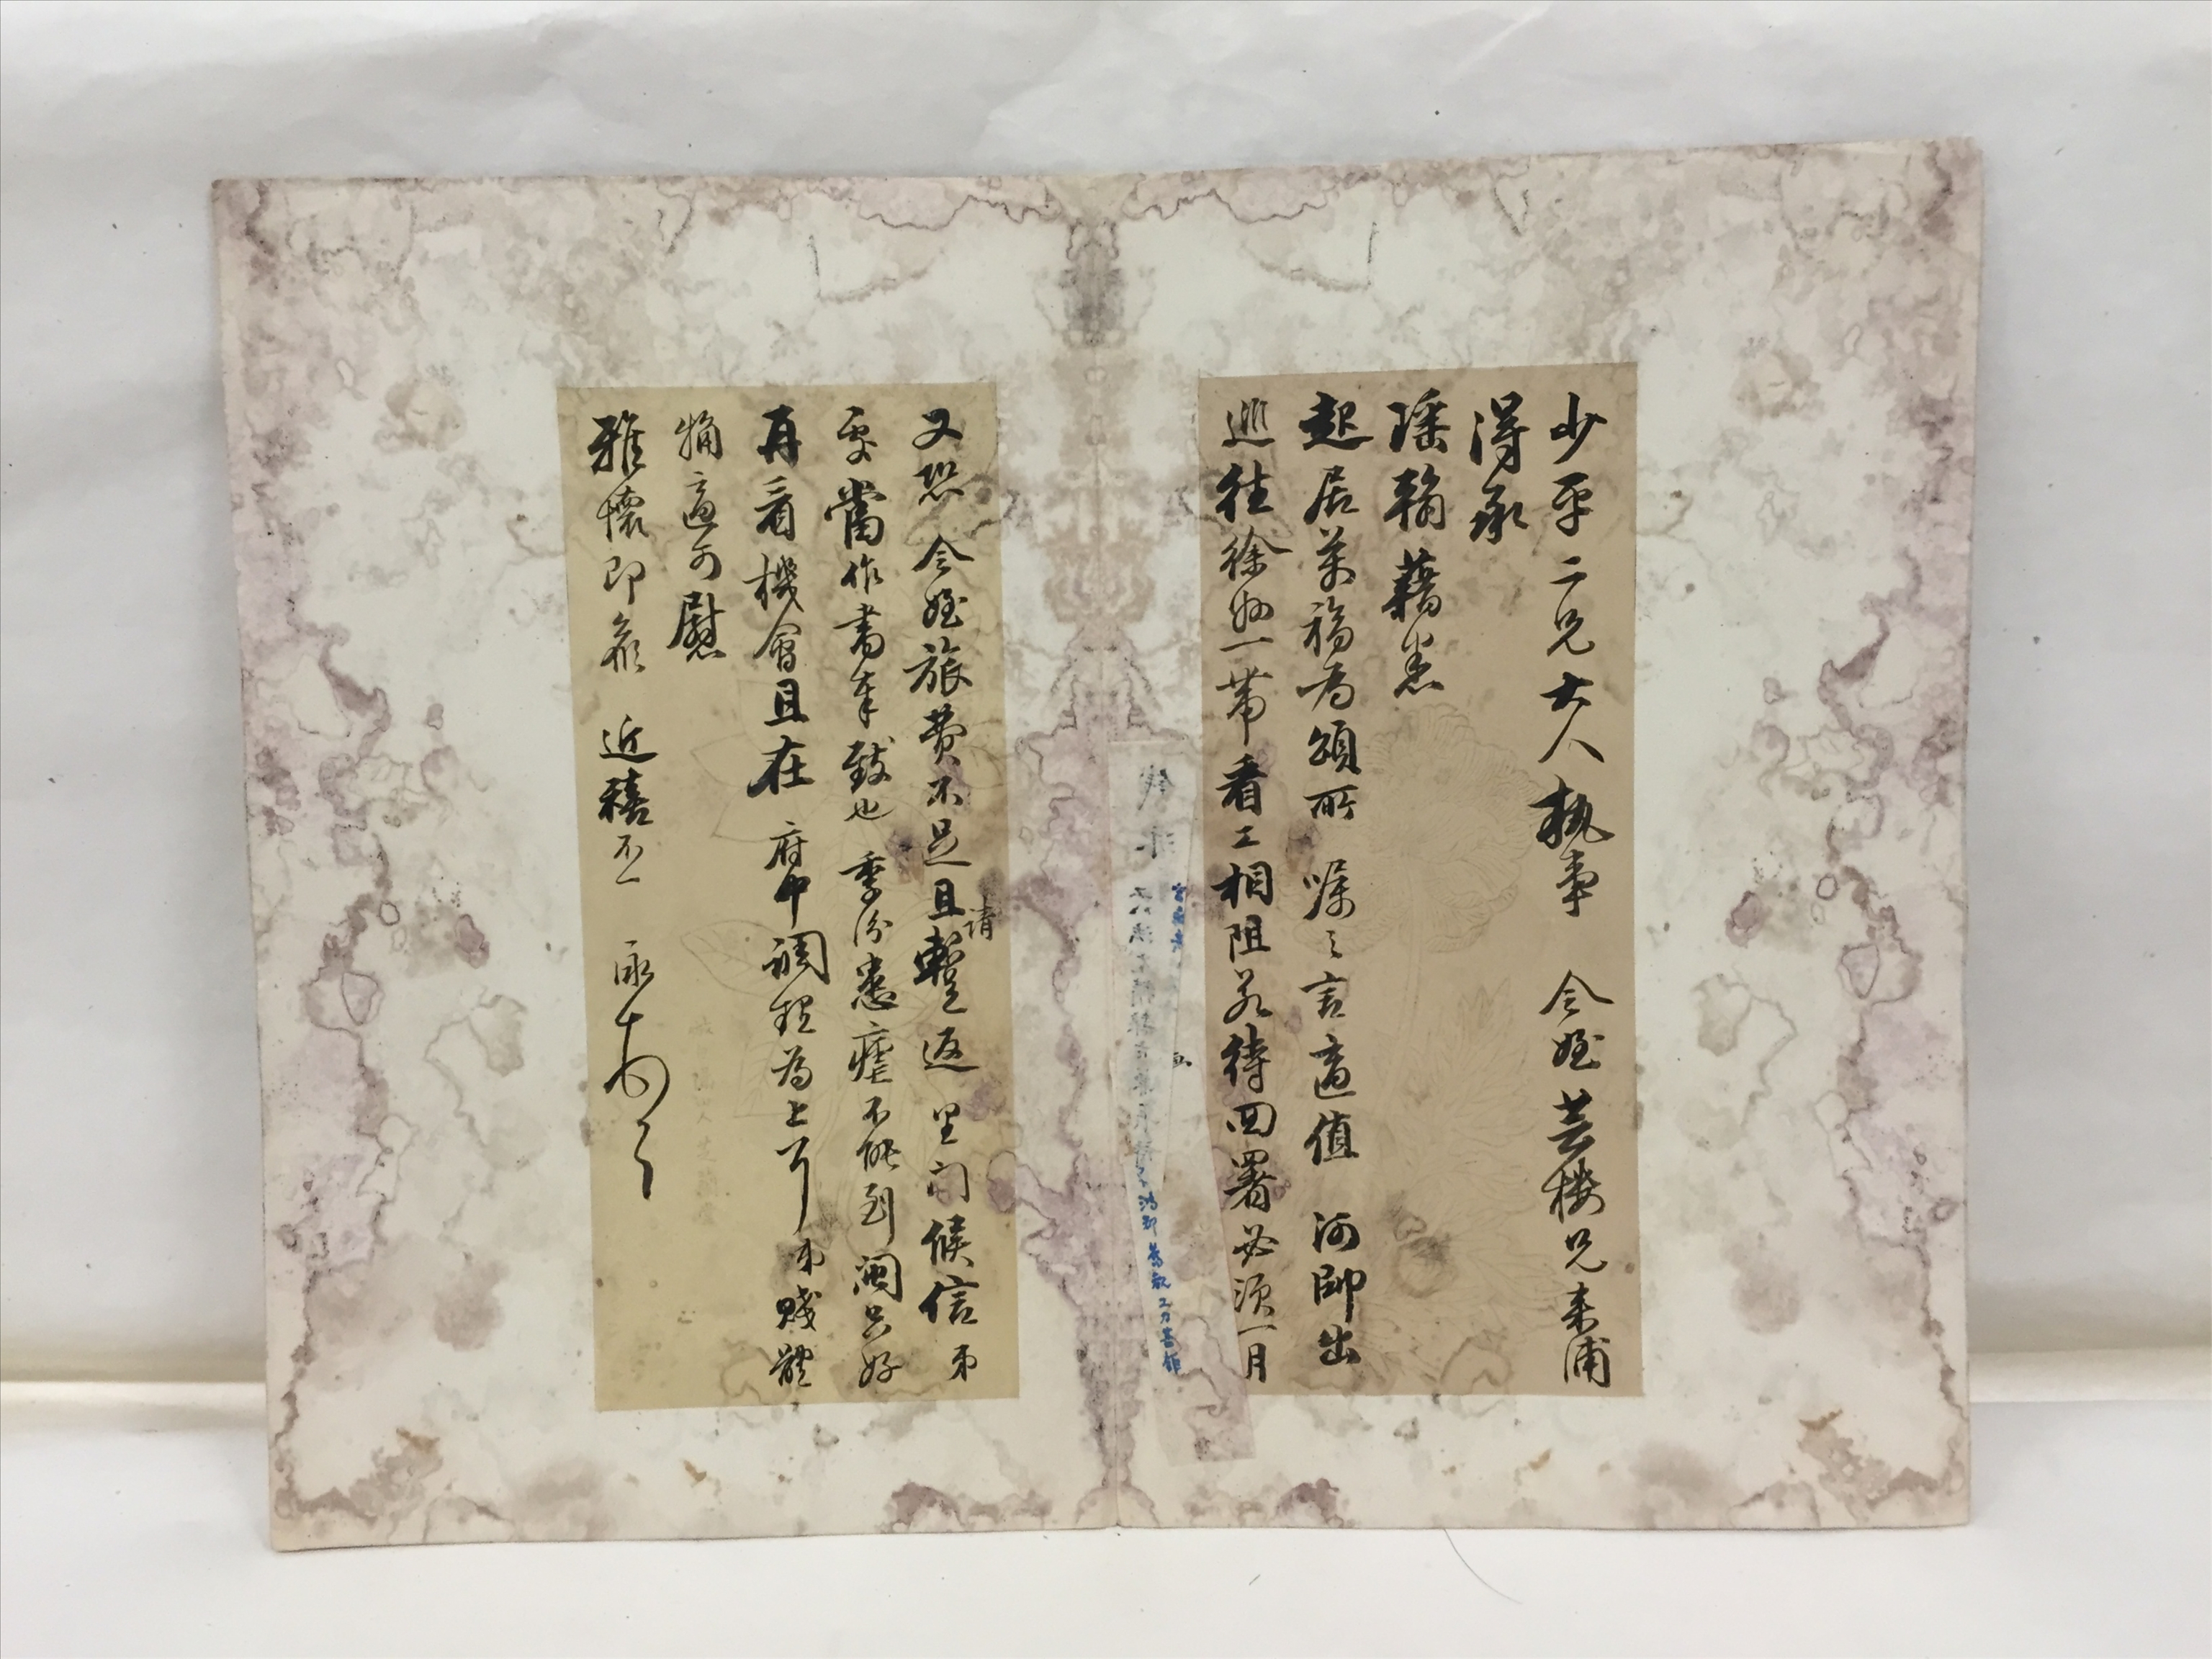 少平二兄大人執事 令姪芸樓兄来浦
得承
瑤翰藉悉
起居萬福為頌所囑之言適值 河帥出
巡往徐州一帶看工相阻若待回署必須一月
又恐 令姪旅費不足且請暫返里門候信弟
處當作書奉致也 季汾患瘧不能到閩只好
再看機會且在 府中調理為上耳 弟賤體
粗適可慰
雅懷即頌 近禧不一